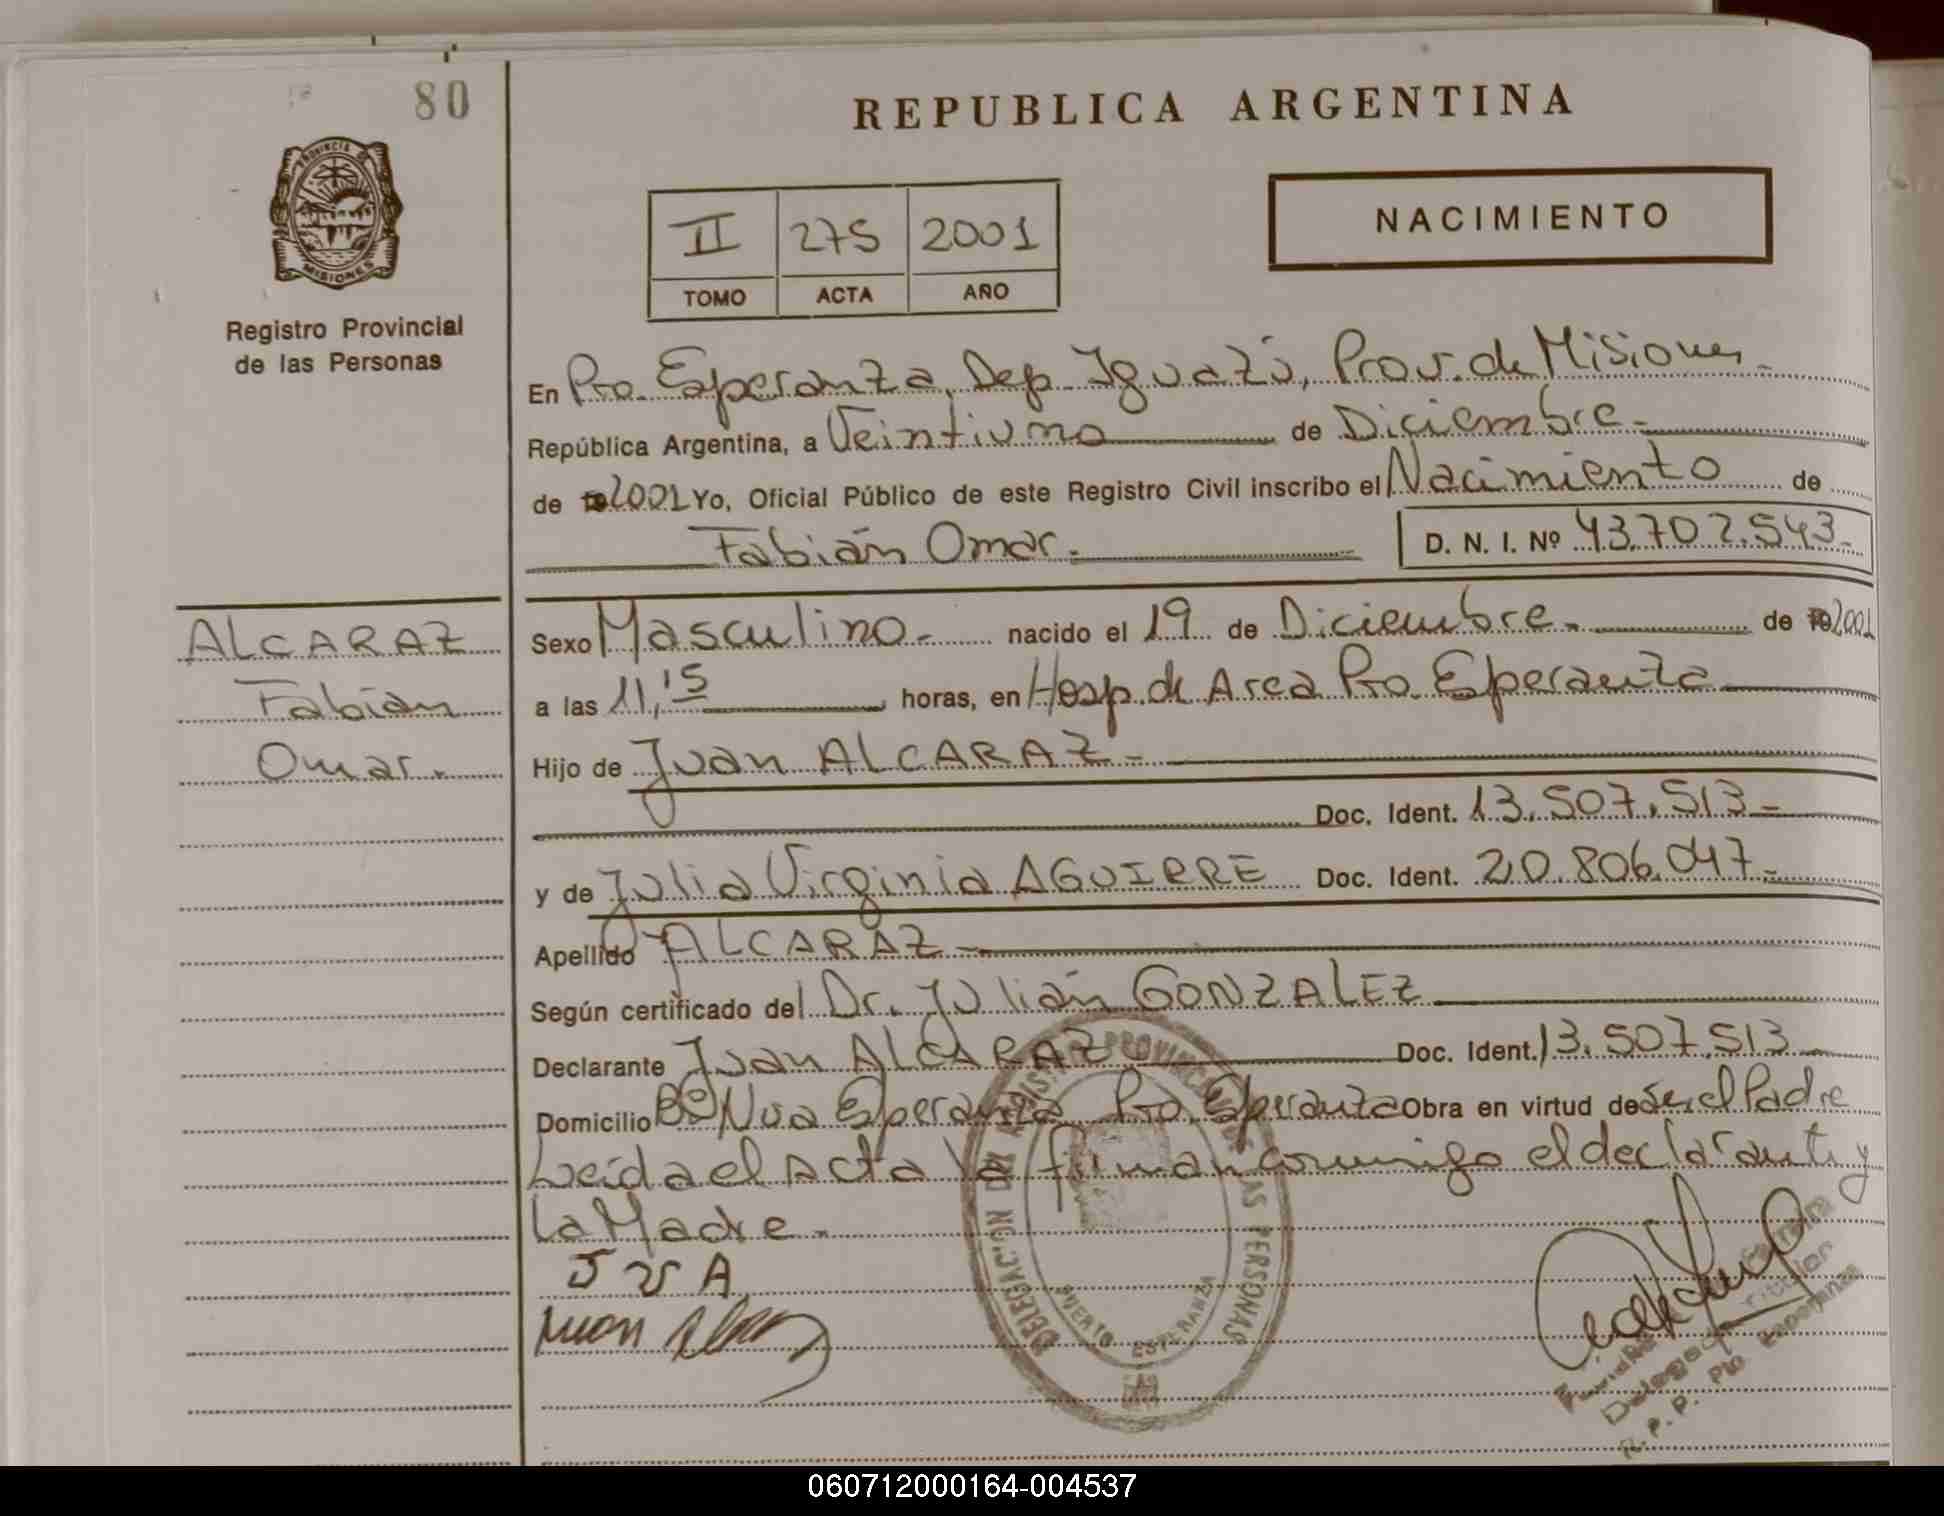 80
REPUBLICA ARGENTINA
PROVINCIA DE
MISIONES
Registro Provincial
de las Personas
II 275 2001
TOMO ACTA AÑO
NACIMIENTO
En Pto. Esperanza, Dep. Iguazú, Prov. de Misiones.-
República Argentina, a Veintiuno de Diciembre.-
de 2001 Yo, Oficial Público de este Registro Civil inscribo el Nacimiento de
Fabián Omar.- D. N. I. Nº 43.702.543.-
ALCARAZ
Fabián
Omar.
Sexo Masculino.- nacido el 19 de Diciembre.- de 2001
a las 11,15 horas, en Hosp. de Area Pto. Esperanza
Hijo de Juan ALCARAZ.-
Doc. Ident. 13.507.513.-
y de Julia Virginia AGUIRRE Doc. Ident. 20.806.047.-
Apellido ALCARAZ.-
Según certificado del Dr. Julián GONZALEZ
Declarante Juan ALCARAZ Doc. Ident. 13.507.513
Domicilio Bº Nva Esperanza Pto. Esperanza Obra en virtud de Ser el Padre
Leída el Acta la firman conmigo el declarante y
La Madre.-
J V A
Juan Alcaraz
DELEGACION DEL REGISTRO PROVINCIAL DE LAS PERSONAS
PUERTO ESPERANZA
Titular
R. P. P. Pto Esperanza
060712000164-004537